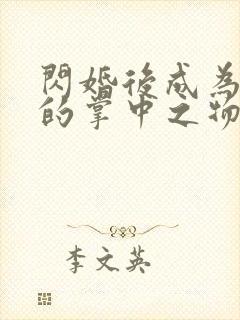 閃婚後成為
的掌中之物
李文英